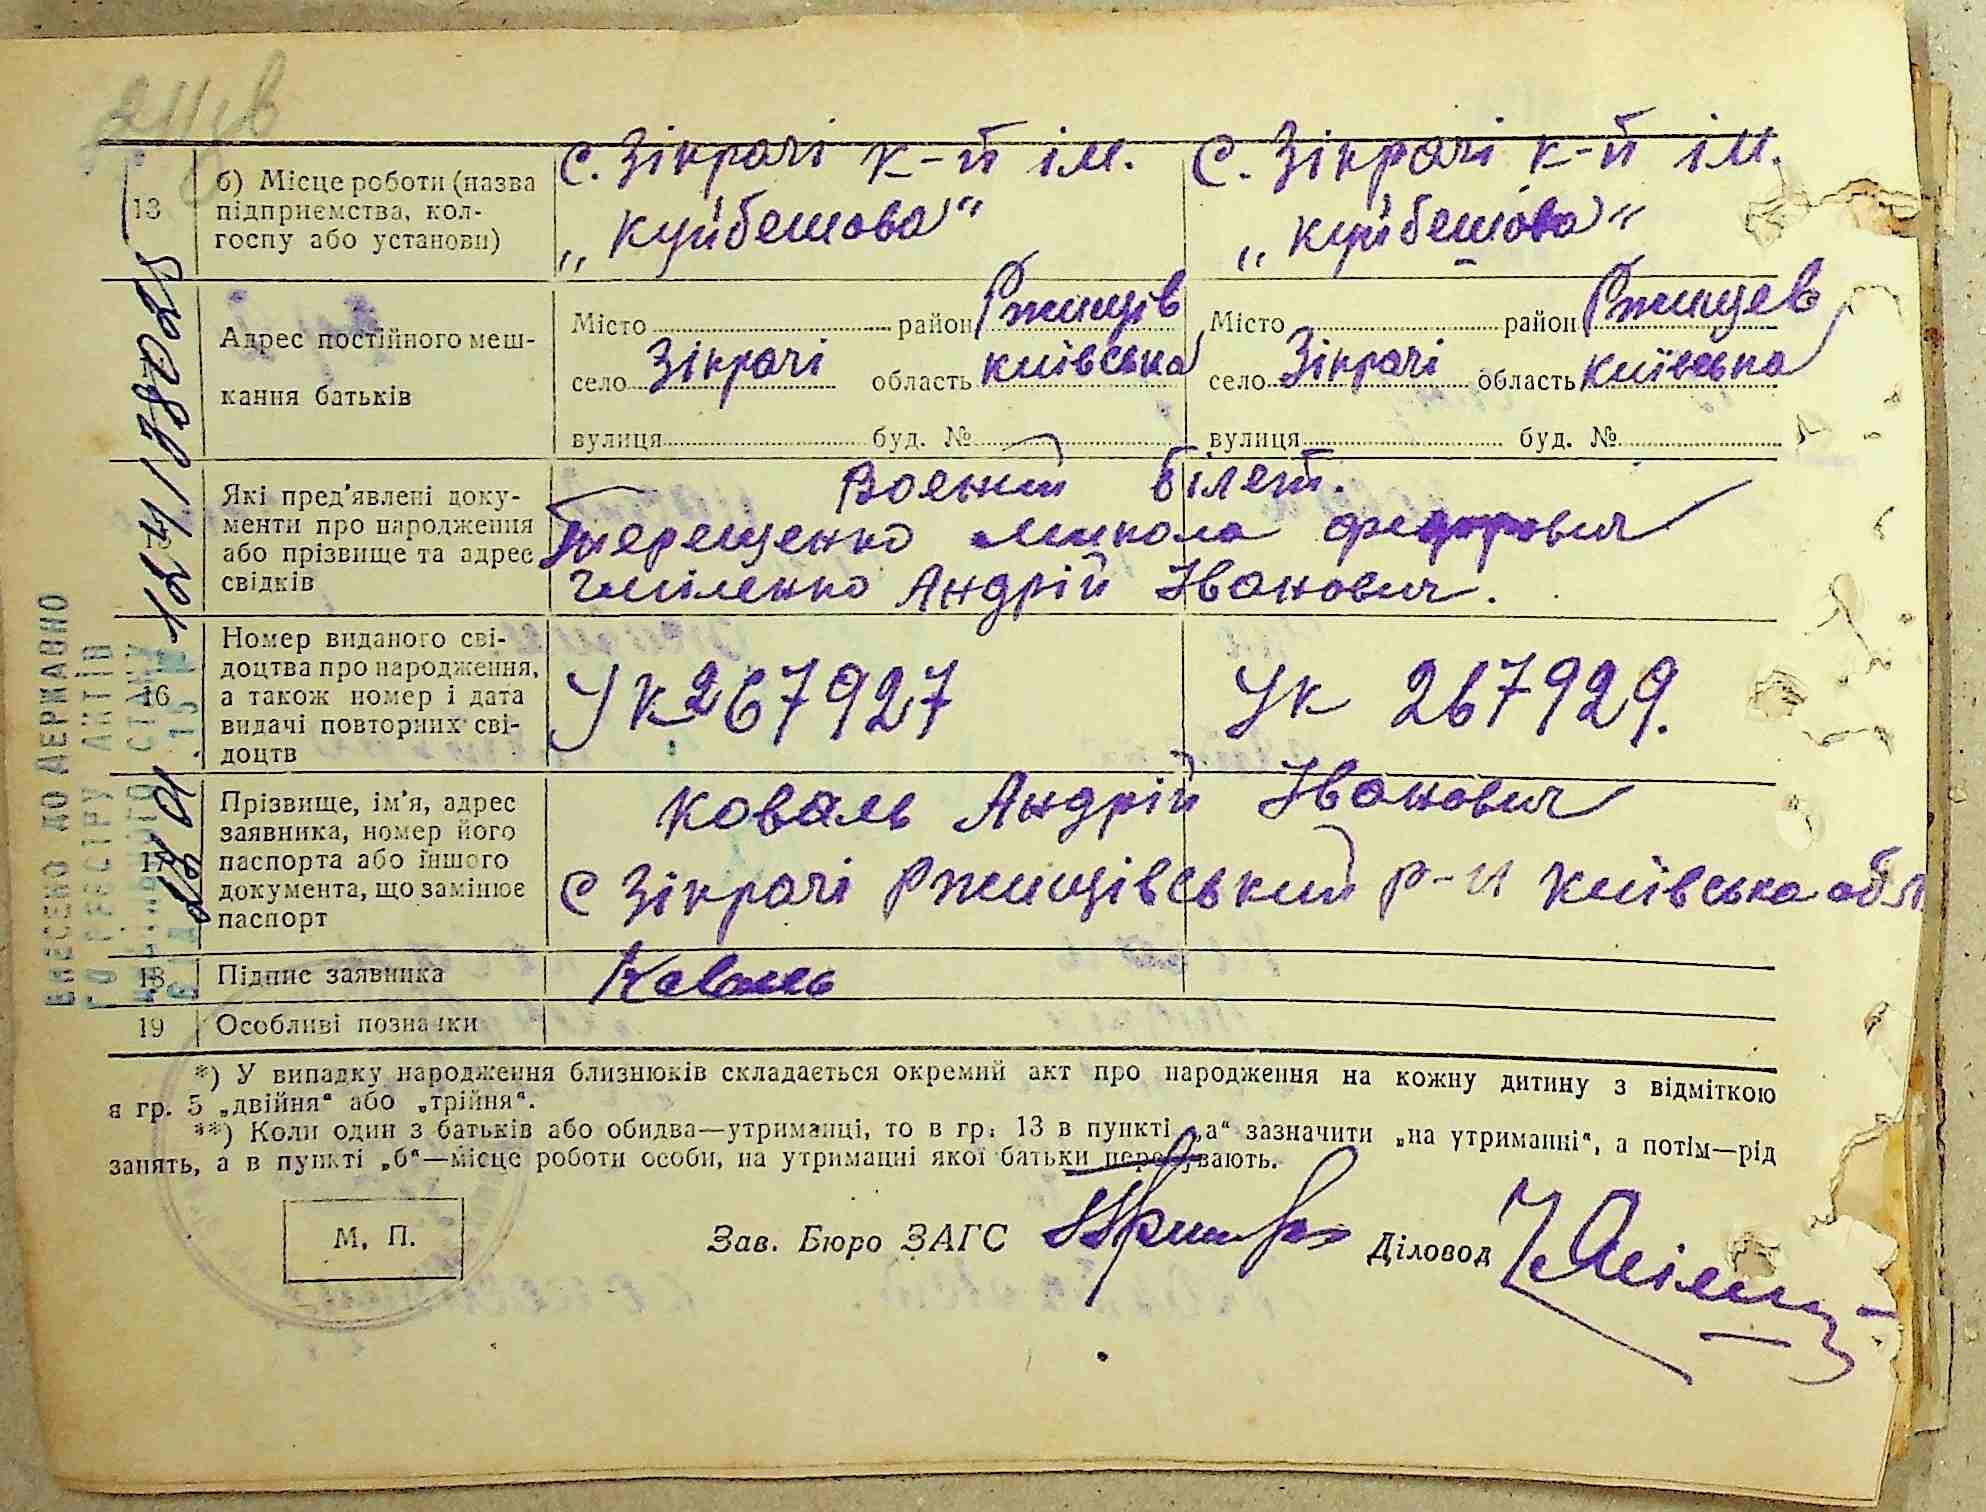 с. Зікрачі к-п ім. с. Зікрачі к-п ім.
13 б) Місце роботи (назва
підприємства, кол-
госпу або установи)
„Куйбешова“ „Куйбешова“
Адрес постійного меш-
кання батьків
Місто район Ржищів Місто район Ржищев
село Зікрачі область Київська село Зікрачі область Київська
вулиця буд. № вулиця буд. №
Які пред'явлені доку-
менти про народження
або прізвище та адрес
свідків
Воєний білет.
Терещенко Микола Федорович
Андрій Іванович.
16 Номер виданого сві-
доцтва про народження,
а також номер і дата
видачі повторних сві-
доцтв
УК 267927 УК 267929.
17 Прізвище, ім'я, адрес
заявника, номер його
паспорта або іншого
документа, що замінює
паспорт
Коваль Андрій Іванович
с Зікрачі Ржищівський р-н Київська обл
18 Підпис заявника Коваль
19 Особливі позначки
*) У випадку народження близнюків складається окремий акт про народження на кожну дитину з відміткою
в гр. 5 „двійня“ або „трійня“.
**) Коли один з батьків або обидва—утриманці, то в гр. 13 в пункті „а“ зазначити „на утриманні“, а потім—рід
занять, а в пункті „б“—місце роботи особи, на утриманні якої батьки перебувають.
М. П.
Зав. Бюро ЗАГС Діловод
ВНЕСЕНО ДО ДЕРЖАВНО
ГО РЕЄСТРУ АКТІВ